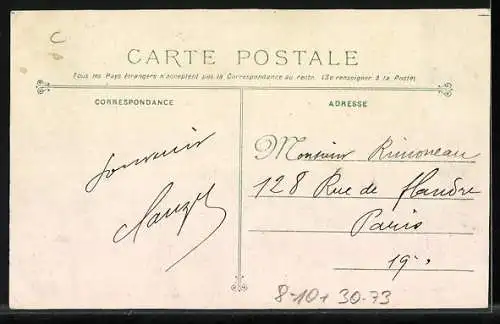 C
CARTE POSTALE
Tous les Pays étrangers n'acceptent pas la Correspondance au recto. (Se renseigner à la Poste)
CORRESPONDANCE
ADRESSE
Souvenir
Monsieur Rimoneau
128 Rue de flandre
Paris
19e
8-10+30-73